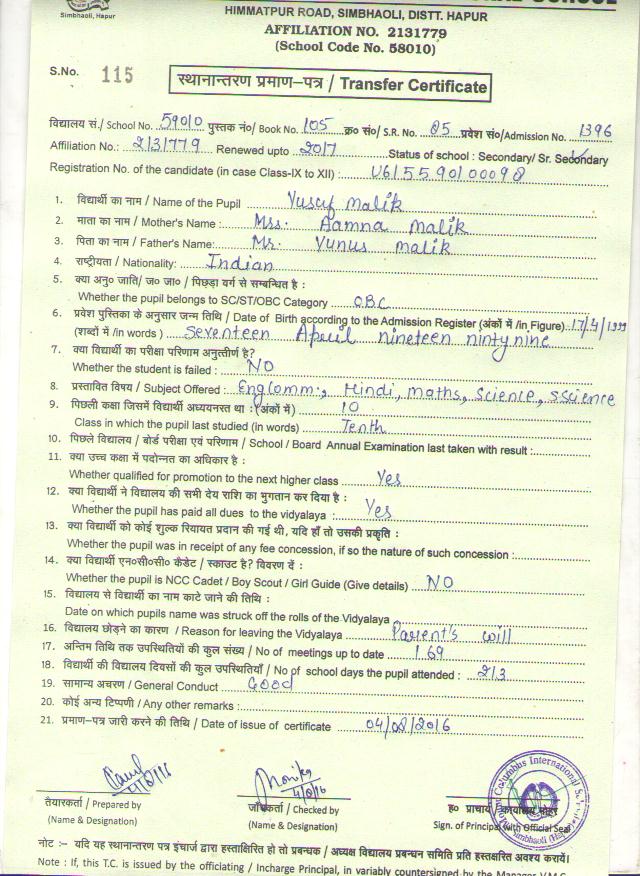 Simbhaoli, Hapur
HIMMATPUR ROAD, SIMBHAOLI, DISTT. HAPUR
AFFILIATION NO. 2131779
(School Code No. 58010)
S.No. 115
स्थानान्तरण प्रमाण–पत्र / Transfer Certificate
विद्यालय सं./ School No. 59010 पुस्तक नं०/ Book No. 105 क्र० सं०/ S.R. No. 05 प्रवेश सं०/Admission No. 1396
Affiliation No.: 2131779 Renewed upto 2017 Status of school : Secondary/ Sr. Secondary
Registration No. of the candidate (in case Class-IX to XII) : U6/55901/00098
1. विद्यार्थी का नाम / Name of the Pupil Yusuf Malik
2. माता का नाम / Mother's Name : Mrs. Aamna Malik
3. पिता का नाम / Father's Name: Mr. Yunus Malik
4. राष्ट्रीयता / Nationality: Indian
5. क्या अनु० जाति/ ज० जा० / पिछड़ा वर्ग से सम्बन्धित है :
Whether the pupil belongs to SC/ST/OBC Category OBC
6. प्रवेश पुस्तिका के अनुसार जन्म तिथि / Date of Birth according to the Admission Register (अंकों में /in Figure) 17/4/1999
(शब्दों में /in words ) Seventeen April nineteen ninty nine
7. क्या विद्यार्थी का परीक्षा परिणाम अनुत्तीर्ण है?
Whether the student is failed : NO
8. प्रस्तावित विषय / Subject Offered : Eng Comm., Hindi, Maths, Science, SScience
9. पिछली कक्षा जिसमें विद्यार्थी अध्ययनरत था : (अंकों में) 10
Class in which the pupil last studied (in words) Tenth
10. पिछले विद्यालय / बोर्ड परीक्षा एवं परिणाम / School / Board Annual Examination last taken with result :
11. क्या उच्च कक्षा में पदोन्नत का अधिकार है :
Whether qualified for promotion to the next higher class Yes
12. क्या विद्यार्थी ने विद्यालय की सभी देय राशि का भुगतान कर दिया है :
Whether the pupil has paid all dues to the vidyalaya : Yes
13. क्या विद्यार्थी को कोई शुल्क रियायत प्रदान की गई थी, यदि हाँ तो उसकी प्रकृति :
Whether the pupil was in receipt of any fee concession, if so the nature of such concession :
14. क्या विद्यार्थी एन०सी०सी० कैडेट / स्काउट है? विवरण दें :
Whether the pupil is NCC Cadet / Boy Scout / Girl Guide (Give details) NO
15. विद्यालय से विद्यार्थी का नाम काटे जाने की तिथि :
Date on which pupils name was struck off the rolls of the Vidyalaya
16. विद्यालय छोड़ने का कारण / Reason for leaving the Vidyalaya Parent's will
17. अन्तिम तिथि तक उपस्थितियों की कुल संख्य / No of meetings up to date 169
18. विद्यार्थी की विद्यालय दिवसों की कुल उपस्थितियाँ / No of school days the pupil attended : 213
19. सामान्य अचरण / General Conduct Good
20. कोई अन्य टिप्पणी / Any other remarks :
21. प्रमाण-पत्र जारी करने की तिथि / Date of issue of certificate 04/08/2016
4/8/16
Monika
4/8/16
तैयारकर्ता / Prepared by
(Name & Designation)
जाँचकर्ता / Checked by
(Name & Designation)
ह० प्राचार्य / कार्यालय मोहर
Sign. of Principal with Official Seal
Columbus International
Simbhaoli
नोट :– यदि यह स्थानान्तरण पत्र इंचार्ज द्वारा हस्ताक्षरित हो तो प्रबन्धक / अध्यक्ष विद्यालय प्रबन्धन समिति प्रति हस्तक्षरित अवश्य करायें।
Note : If, this T.C. is issued by the officiating / Incharge Principal, in variably countersigned by the Manager V.M.C.